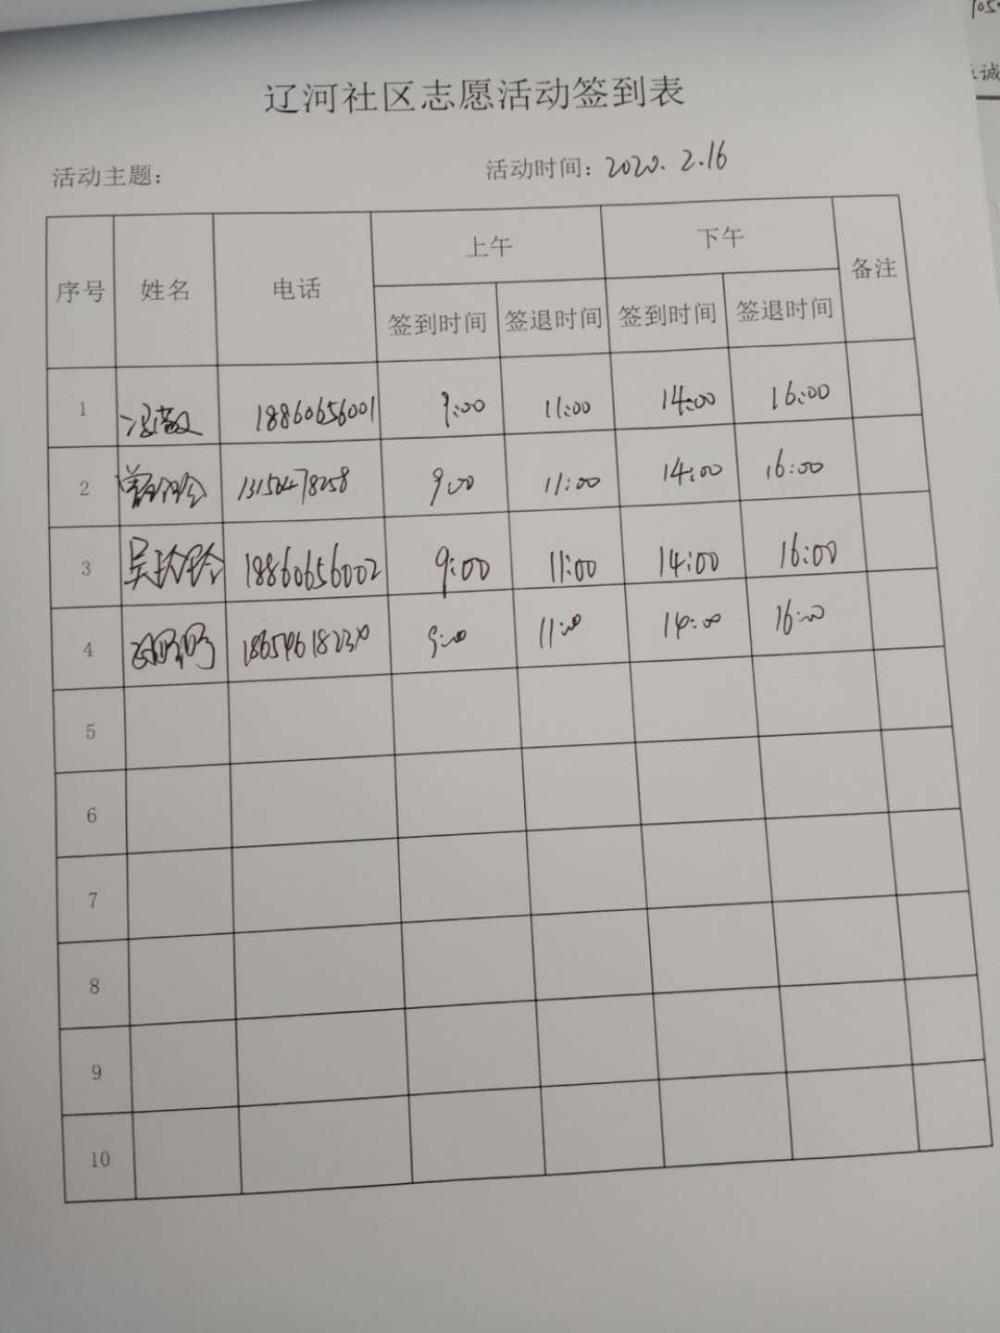 辽河社区志愿活动签到表
活动主题： 活动时间：2020. 2.16
序号 姓名 电话 上午 下午 备注
签到时间 签退时间 签到时间 签退时间
1 18860656001 9:00 11:00 14:00 16:00
2 9:00 11:00 14:00 16:00
3 吴玲玲 18860656002 9:00 11:00 14:00 16:00
4 9:00 11:00 14:00 16:00
5
6
7
8
9
10
诚